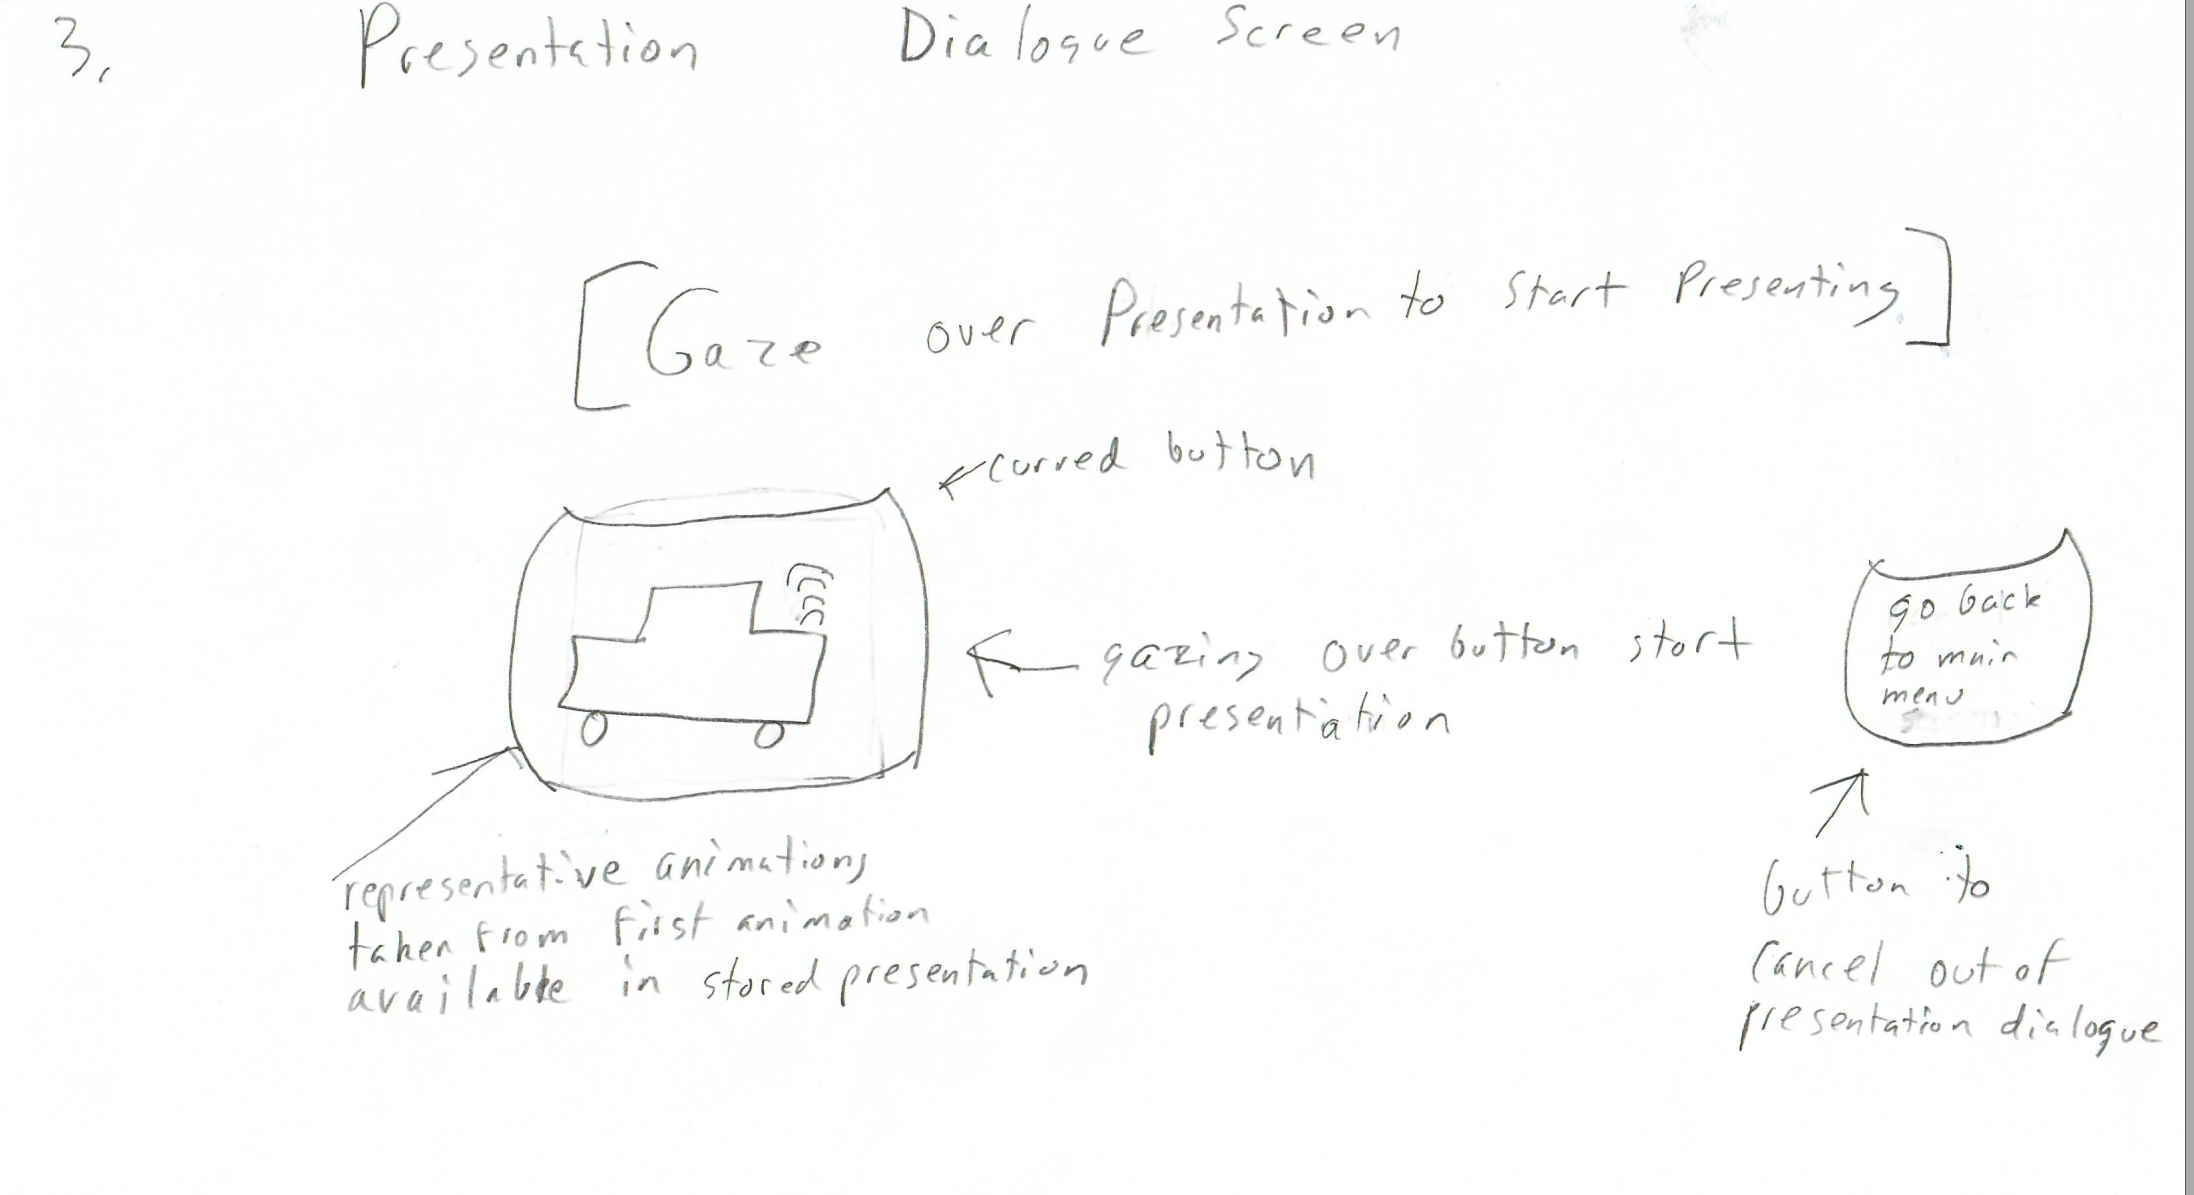 3. Presentation Dialogue Screen
[Gaze over Presentation to Start Presenting]
curved button
go back
to main
menu
gazing over button start
presentiation
representative animations
taken from first animation
available in stored presentation
button to
cancel out of
presentation dialogue